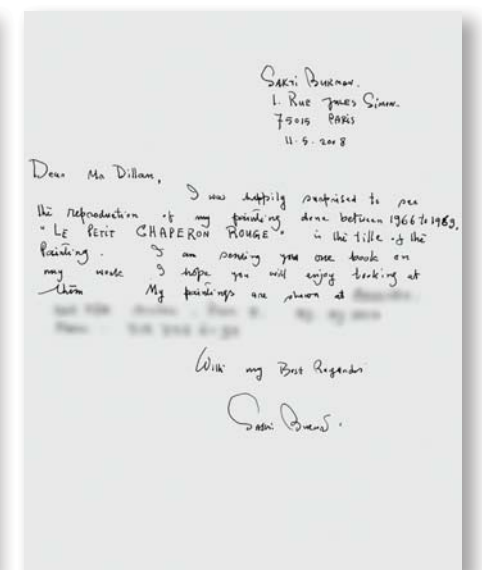 SAKTI BURMAN.
1. RUE JULES SIMON.
75015 PARIS
11-5-2008
Dear Mr Dillan,
I was happily surprised to see
the reproduction of my painting done between 1966 to 1969.
"LE PETIT CHAPERON ROUGE" is the title of the
Painting. I am sending you one book on
my work I hope you will enjoy looking at
them My paintings are shown at
With my Best Regards
Sakti Burman.